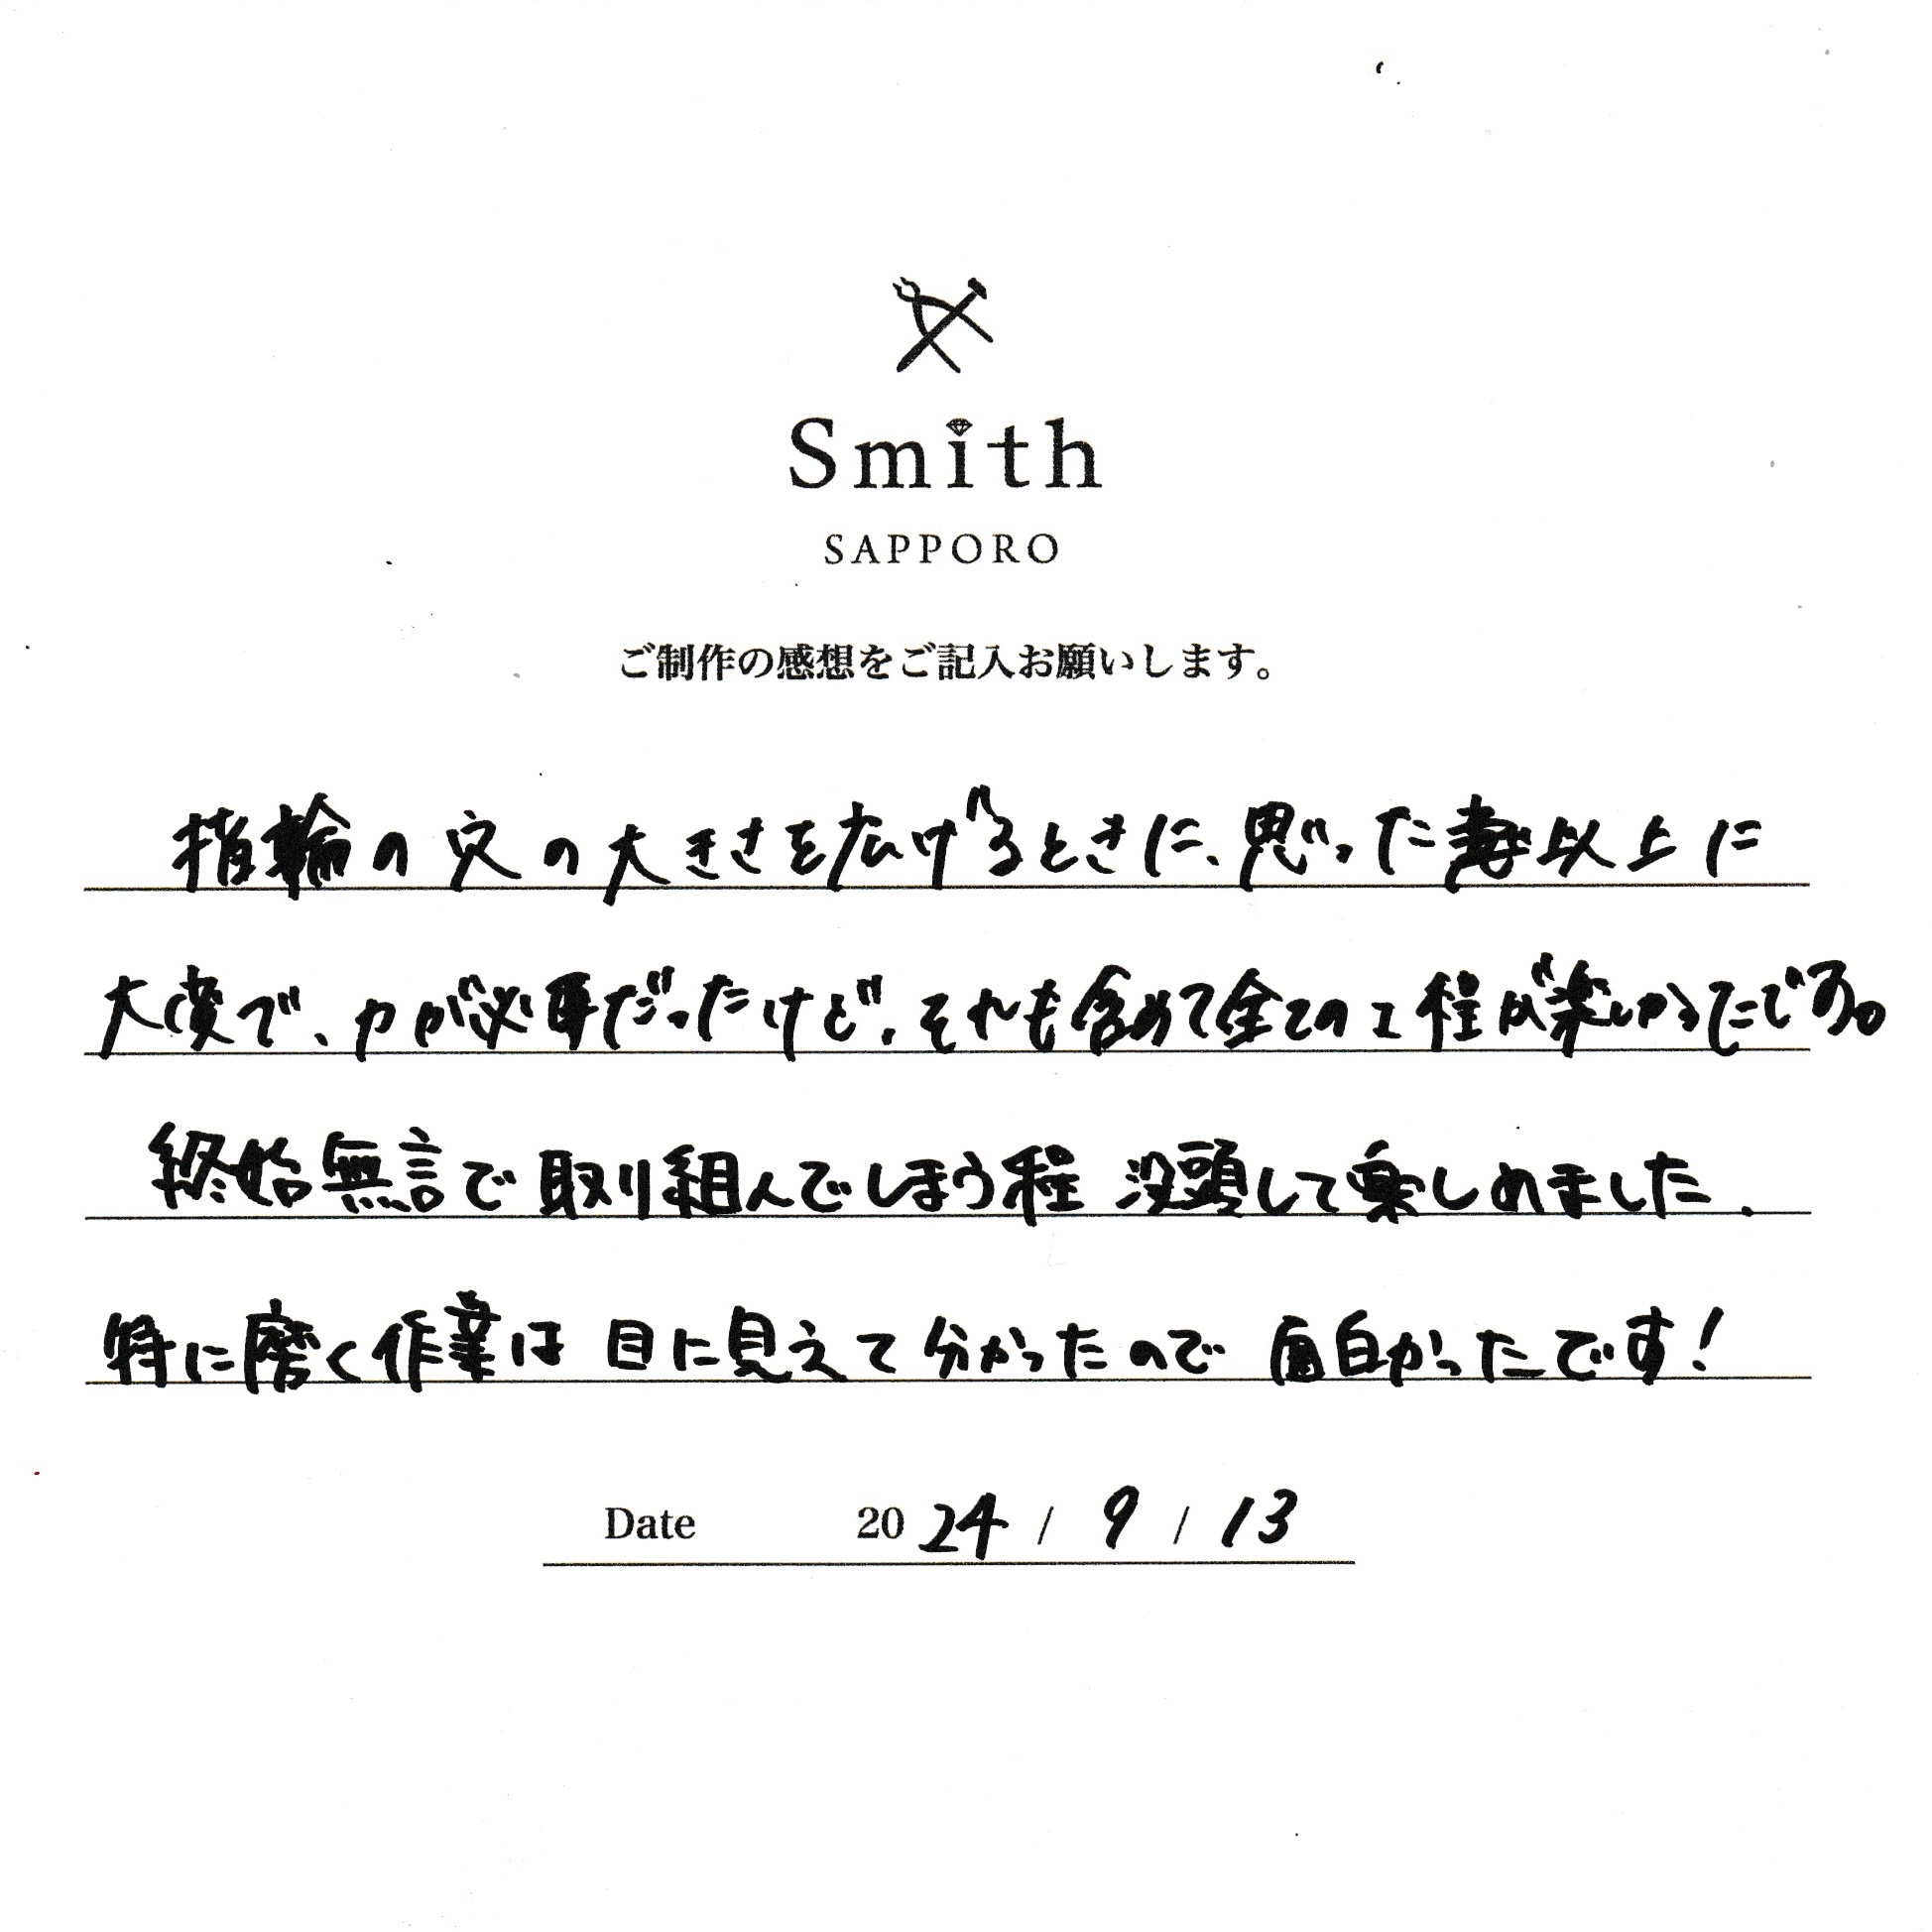 Smith
SAPPORO
ご制作の感想をご記入お願いします。
指輪の穴の大きさを広げるときに、思った以上に
大変で、力が必要だったけど、それも含めて全ての工程が楽しかったです。
終始無言で取り組んでしまう程 没頭して楽しめました.
特に磨く作業は 目に見えて分かったので 面白かったです!
Date 2024 / 9 / 13